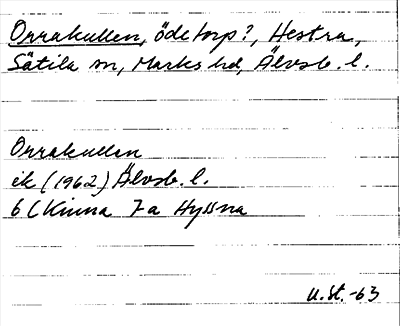 Orrakullen, ödetorp?, Hestra,
Sätila sn, Marks hd, Älvsb. l.
Orrakullen
ek (1962) Älvsb. l.
6 C Kinna 7a Hyssna
U.St.-63